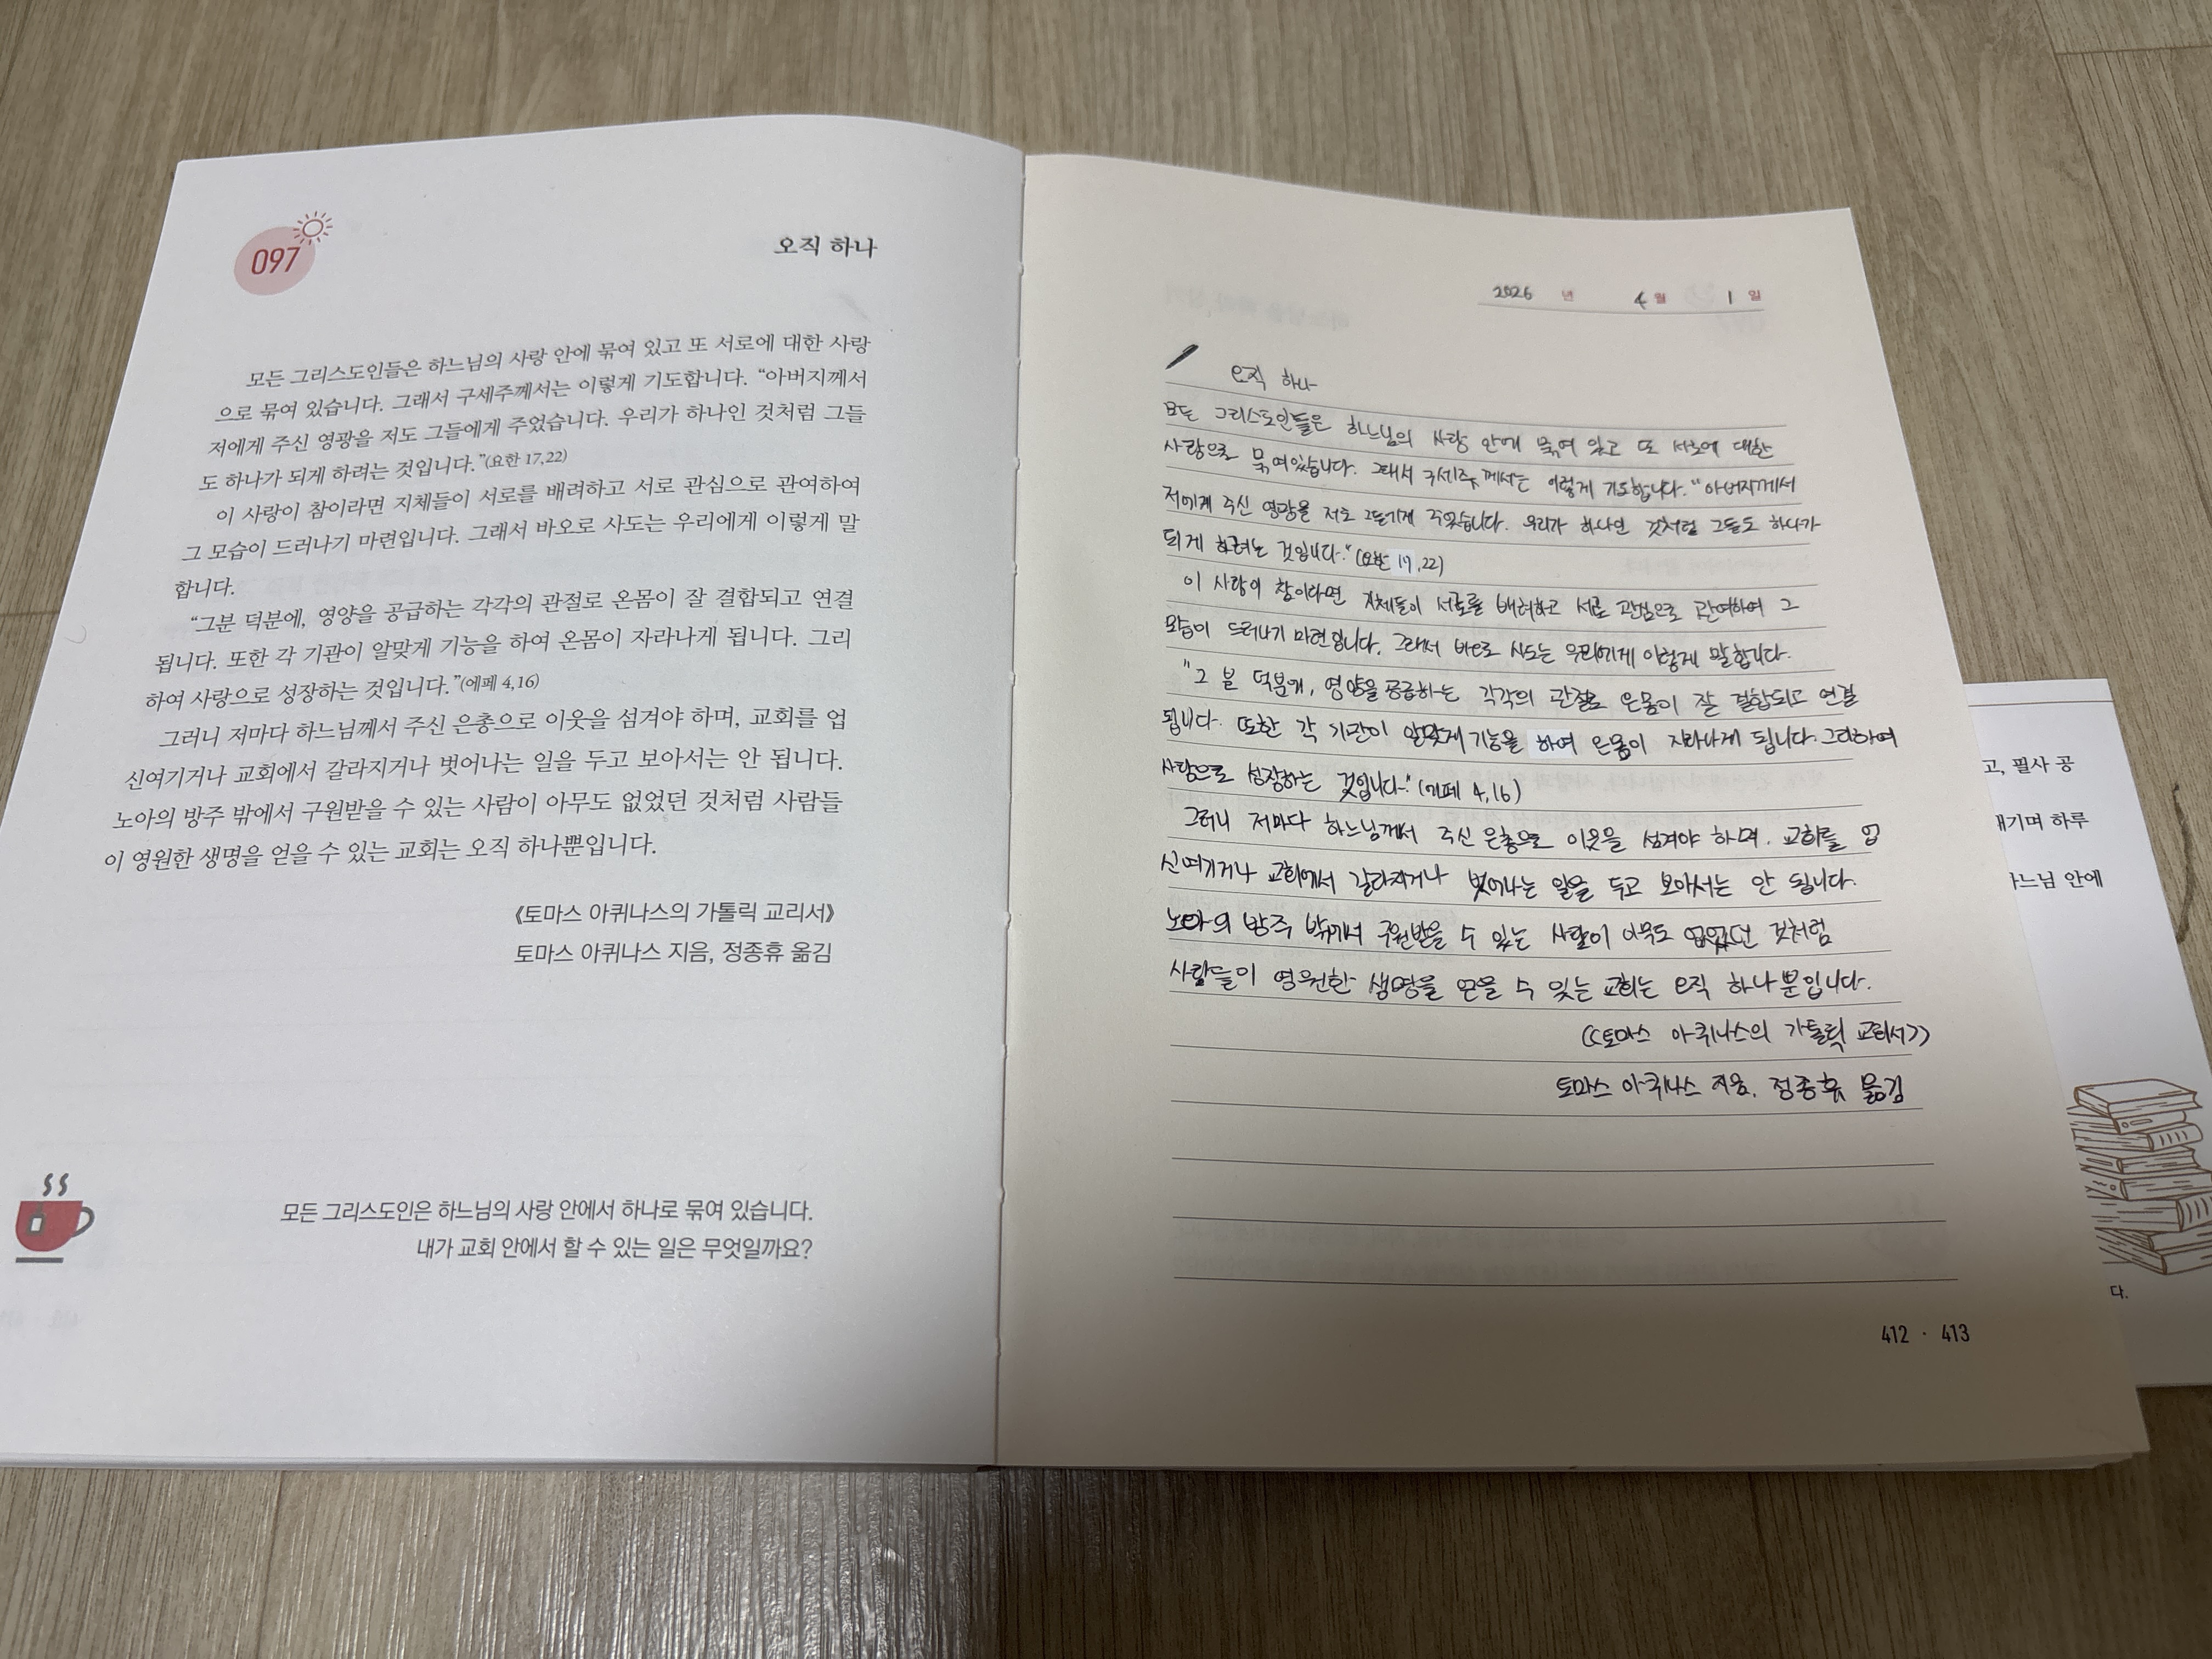 097
오직 하나
모든 그리스도인들은 하느님의 사랑 안에 묶여 있고 또 서로에 대한 사랑
으로 묶여 있습니다. 그래서 구세주께서는 이렇게 기도합니다. “아버지께서
저에게 주신 영광을 저도 그들에게 주었습니다. 우리가 하나인 것처럼 그들
도 하나가 되게 하려는 것입니다.”(요한 17,22)
이 사랑이 참이라면 지체들이 서로를 배려하고 서로 관심으로 관여하여
그 모습이 드러나기 마련입니다. 그래서 바오로 사도는 우리에게 이렇게 말
합니다.
“그분 덕분에, 영양을 공급하는 각각의 관절로 온몸이 잘 결합되고 연결
됩니다. 또한 각 기관이 알맞게 기능을 하여 온몸이 자라나게 됩니다. 그리
하여 사랑으로 성장하는 것입니다.”(에페 4,16)
그러니 저마다 하느님께서 주신 은총으로 이웃을 섬겨야 하며, 교회를 업
신여기거나 교회에서 갈라지거나 벗어나는 일을 두고 보아서는 안 됩니다.
노아의 방주 밖에서 구원받을 수 있는 사람이 아무도 없었던 것처럼 사람들
이 영원한 생명을 얻을 수 있는 교회는 오직 하나뿐입니다.
《토마스 아퀴나스의 가톨릭 교리서》
토마스 아퀴나스 지음, 정종휴 옮김
모든 그리스도인은 하느님의 사랑 안에서 하나로 묶여 있습니다.
내가 교회 안에서 할 수 있는 일은 무엇일까요?
2026 년 4 월 1 일
오직 하나
모든 그리스도인들은 하느님의 사랑 안에 묶여 있고 또 서로에 대한
사랑으로 묶여있습니다. 그래서 구세주께서는 이렇게 기도합니다. “아버지께서
저에게 주신 영광을 저도 그들에게 주었습니다. 우리가 하나인 것처럼 그들도 하나가
되게 하려는 것입니다.”(요한 17,22)
이 사랑이 참이라면 지체들이 서로를 배려하고 서로 관심으로 관여하여 그
모습이 드러나기 마련입니다. 그래서 바오로 사도는 우리에게 이렇게 말합니다.
“그 분 덕분에, 영양을 공급하는 각각의 관절로 온몸이 잘 결합되고 연결
됩니다. 또한 각 기관이 알맞게 기능을 하여 온몸이 자라나게 됩니다. 그리하여
사랑으로 성장하는 것입니다.”(에페 4,16)
그러니 저마다 하느님께서 주신 은총으로 이웃을 섬겨야 하며, 교회를 업
신여기거나 교회에서 갈라지거나 벗어나는 일을 두고 보아서는 안 됩니다.
노아의 방주 밖에서 구원받을 수 있는 사람이 아무도 없었던 것처럼
사람들이 영원한 생명을 얻을 수 있는 교회는 오직 하나뿐입니다.
《토마스 아퀴나스의 가톨릭 교리서》
토마스 아퀴나스 지음, 정종휴 옮김
412 · 413
고, 필사 공
기며 하루
느님 안에
다.